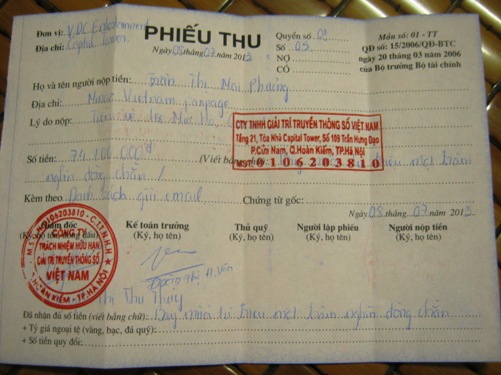 Đơn vị: VDC Entertainment
Địa chỉ: Capital Tower
PHIẾU THU
Ngày 05 tháng 07 năm 2013
Quyển số 01
Số 05
NỢ
CÓ
Mẫu số: 01 - TT
QĐ số: 15/2006/QĐ-BTC
ngày 20 tháng 03 năm 2006
của Bộ trưởng Bộ tài chính
Họ và tên người nộp tiền: Trần Thị Mai Phương
Địa chỉ: Muse Vietnam fanpage
Lý do nộp: Tiền vé
Số tiền: 74.100.000đ (Viết bằng triệu một trăm
nghìn đồng chẵn /
Kèm theo Danh sách gửi email Chứng từ gốc:
CTY TNHH GIẢI TRÍ TRUYỀN THÔNG SỐ VIỆT NAM
Tầng 21, Tòa Nhà Capital Tower, Số 109 Trần Hưng Đạo
P.Cửa Nam, Q.Hoàn Kiếm, TP.Hà Nội
MST: 0106203810
Ngày 05 tháng 07 năm 2013
Giám đốc
Kế toán trưởng
(Ký, họ tên)
Thủ quỹ
(Ký, họ tên)
Người lập phiếu
(Ký, họ tên)
Người nộp tiền
(Ký, họ tên)
M.S.T: 0106203810 - C.T.T.N.H.H
CÔNG TY
TRÁCH NHIỆM HỮU HẠN
GIẢI TRÍ TRUYỀN THÔNG SỐ
VIỆT NAM
HOÀN KIẾM - TP.HÀ NỘI
Thị H. Vân
Thị Thu Thủy
Đã nhận đủ số tiền (viết bằng chữ): Bảy mươi tư triệu một trăm nghìn đồng chẵn
+ Tỷ giá ngoại tệ (vàng, bạc, đá quý):
+ Số tiền quy đổi: